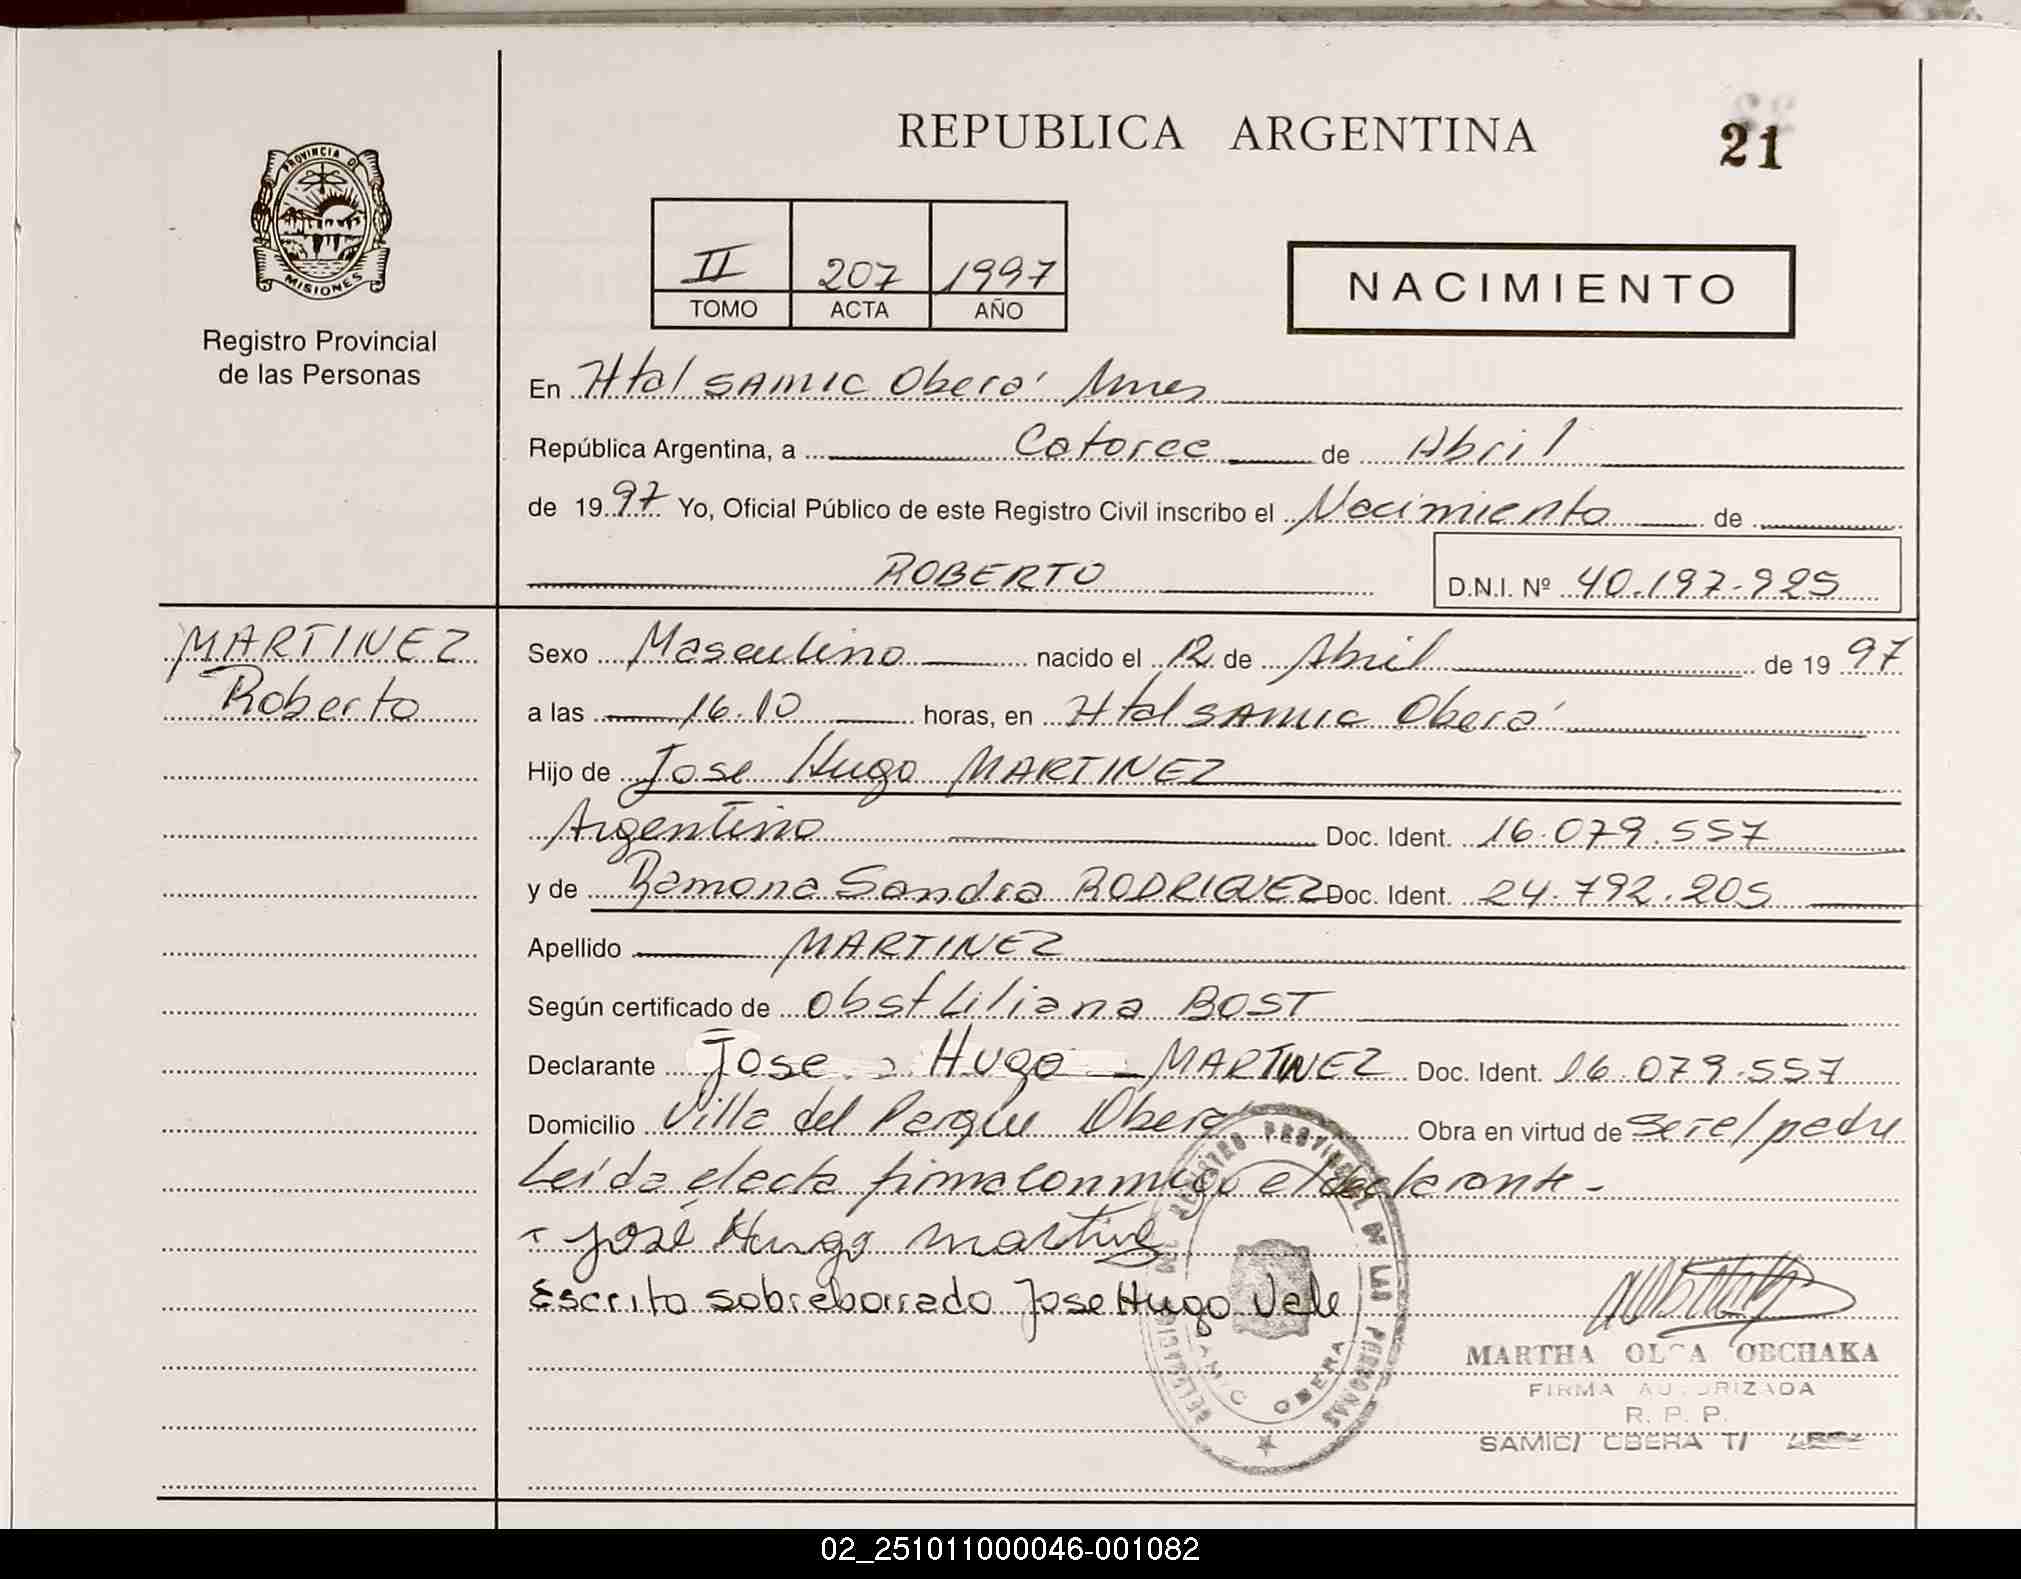 REPUBLICA ARGENTINA
21
PROVINCIA DE
MISIONES
Registro Provincial
de las Personas
II 207 1997
TOMO ACTA AÑO
NACIMIENTO
En Htal SAMIC Oberá Mnes
República Argentina, a Catorce de Abril
de 1997 Yo, Oficial Público de este Registro Civil inscribo el Nacimiento de
ROBERTO D.N.I. Nº 40.197.925
MARTINEZ
Roberto
Sexo Masculino nacido el 12 de Abril de 1997
a las 16.10 horas, en Htal SAMIC Oberá
Hijo de Jose Hugo MARTINEZ
Argentino Doc. Ident. 16.079.557
y de Ramona Sandra RODRIGUEZ Doc. Ident. 24.792.205
Apellido MARTINEZ
Según certificado de Obst Liliana BOST
Declarante Jose Hugo MARTINEZ Doc. Ident. 16.079.557
Domicilio Villa del Parque Oberá Obra en virtud de ser el padre
Leída el acta firma conmigo el declarante -
José Hugo Martinez
Escrito sobreborrado Jose Hugo Vale
DELEGACION DEL REGISTRO PROVINCIAL DE LAS PERSONAS
SAMIC OBERA
MARTHA OLGA OBCHAKA
FIRMA AUTORIZADA
R. P. P.
SAMIC/ OBERA T/
02_251011000046-001082